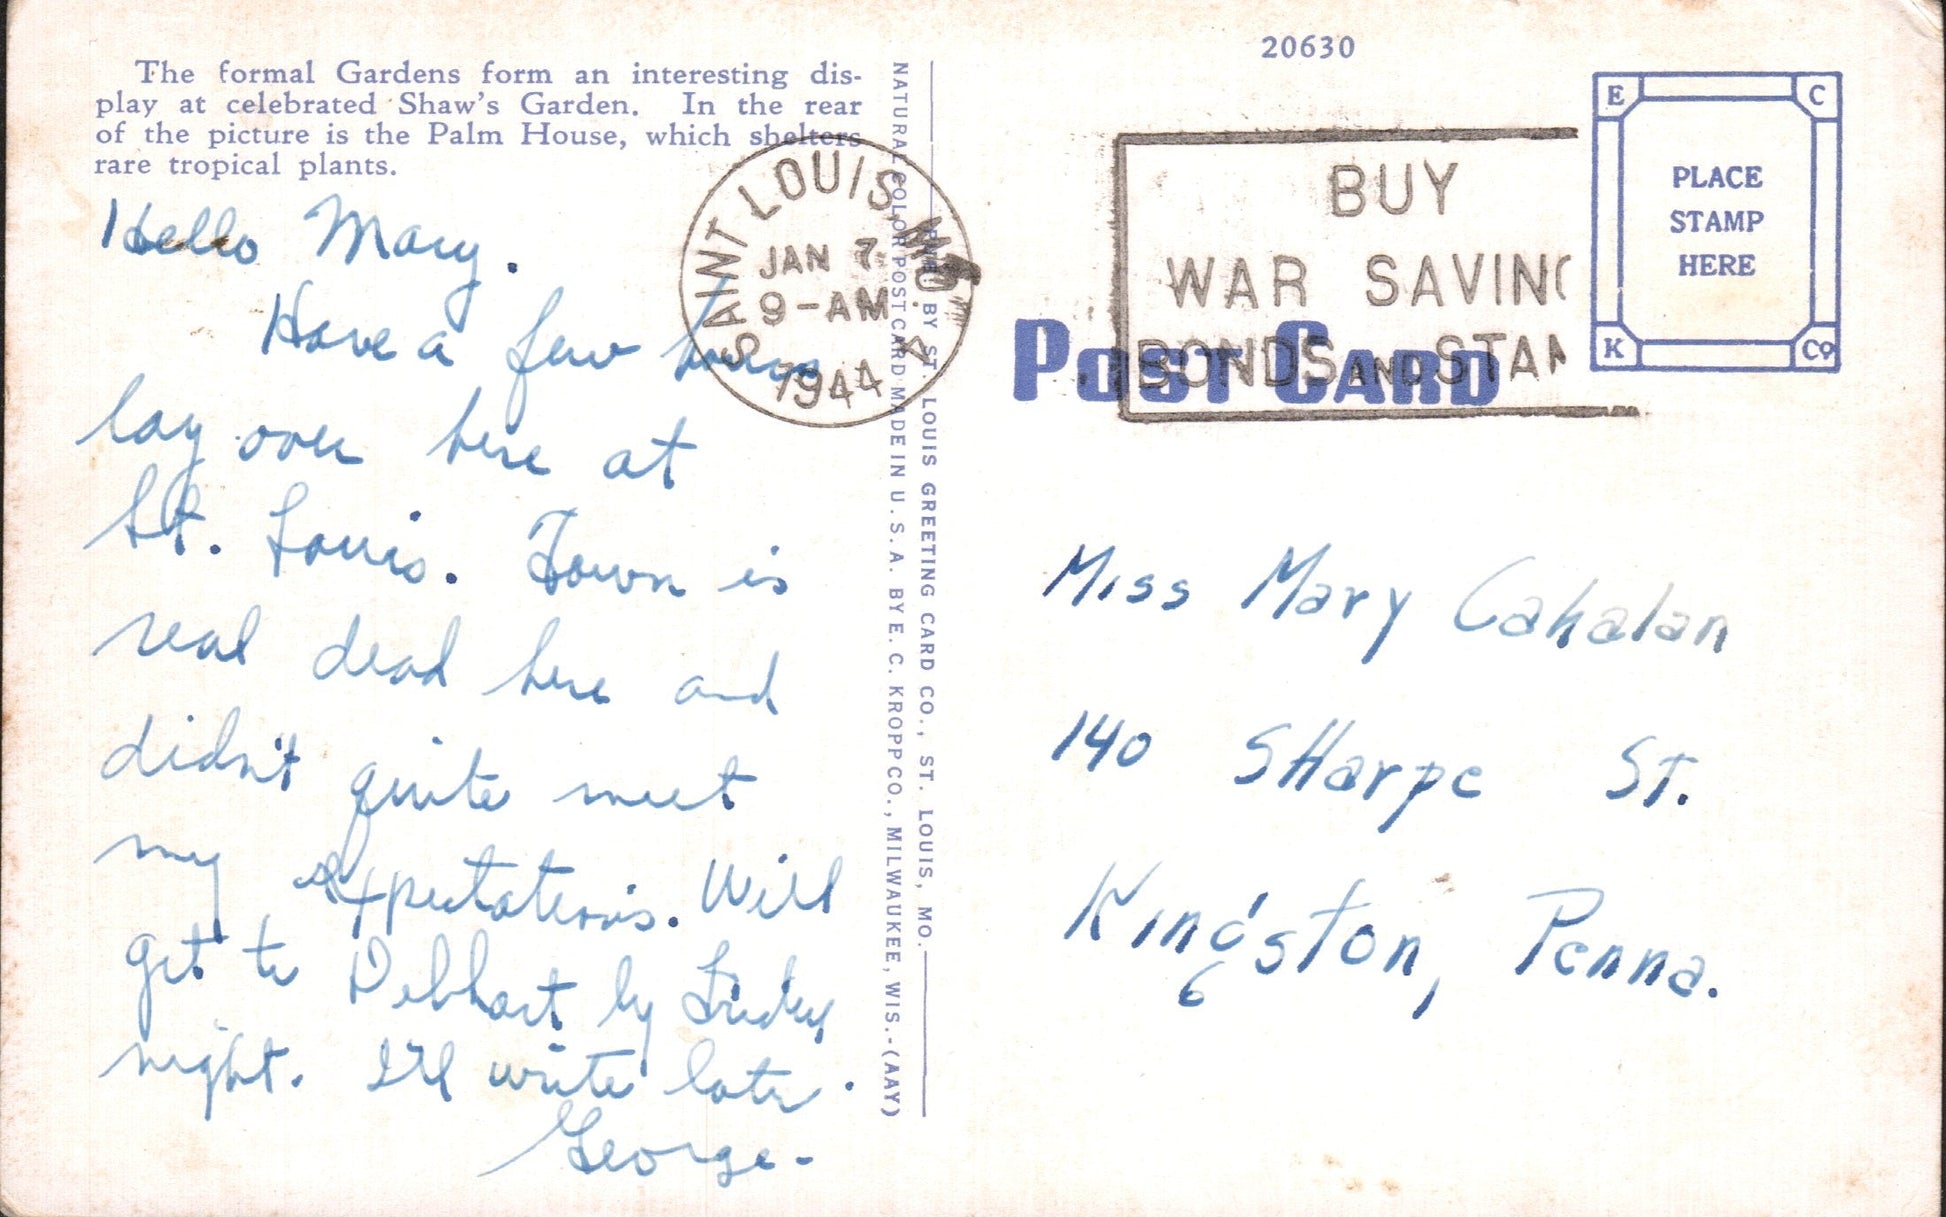 The formal Gardens form an interesting dis-
play at celebrated Shaw's Garden. In the rear
of the picture is the Palm House, which shelters
rare tropical plants.
Hello Mary.
Have a few hours
lay over here at
St. Louis. Town is
real dead here and
didn't quite meet
my expectations. Will
get to by Friday
night. I'll write later.
George.
NATURAL COLOR POST CARD MADE IN U. S. A. BY E. C. KROPP CO., MILWAUKEE, WIS.-(AAY)
PUB. BY ST. LOUIS GREETING CARD CO., ST. LOUIS, MO.
SAINT LOUIS, MO.
JAN 7
9-AM
1944
20630
BUY
WAR SAVING
BONDS AND STAM
POST CARD
E C
PLACE
STAMP
HERE
K CO
Miss Mary Cahalan
140 SHarpe St.
Kingston, Penna.